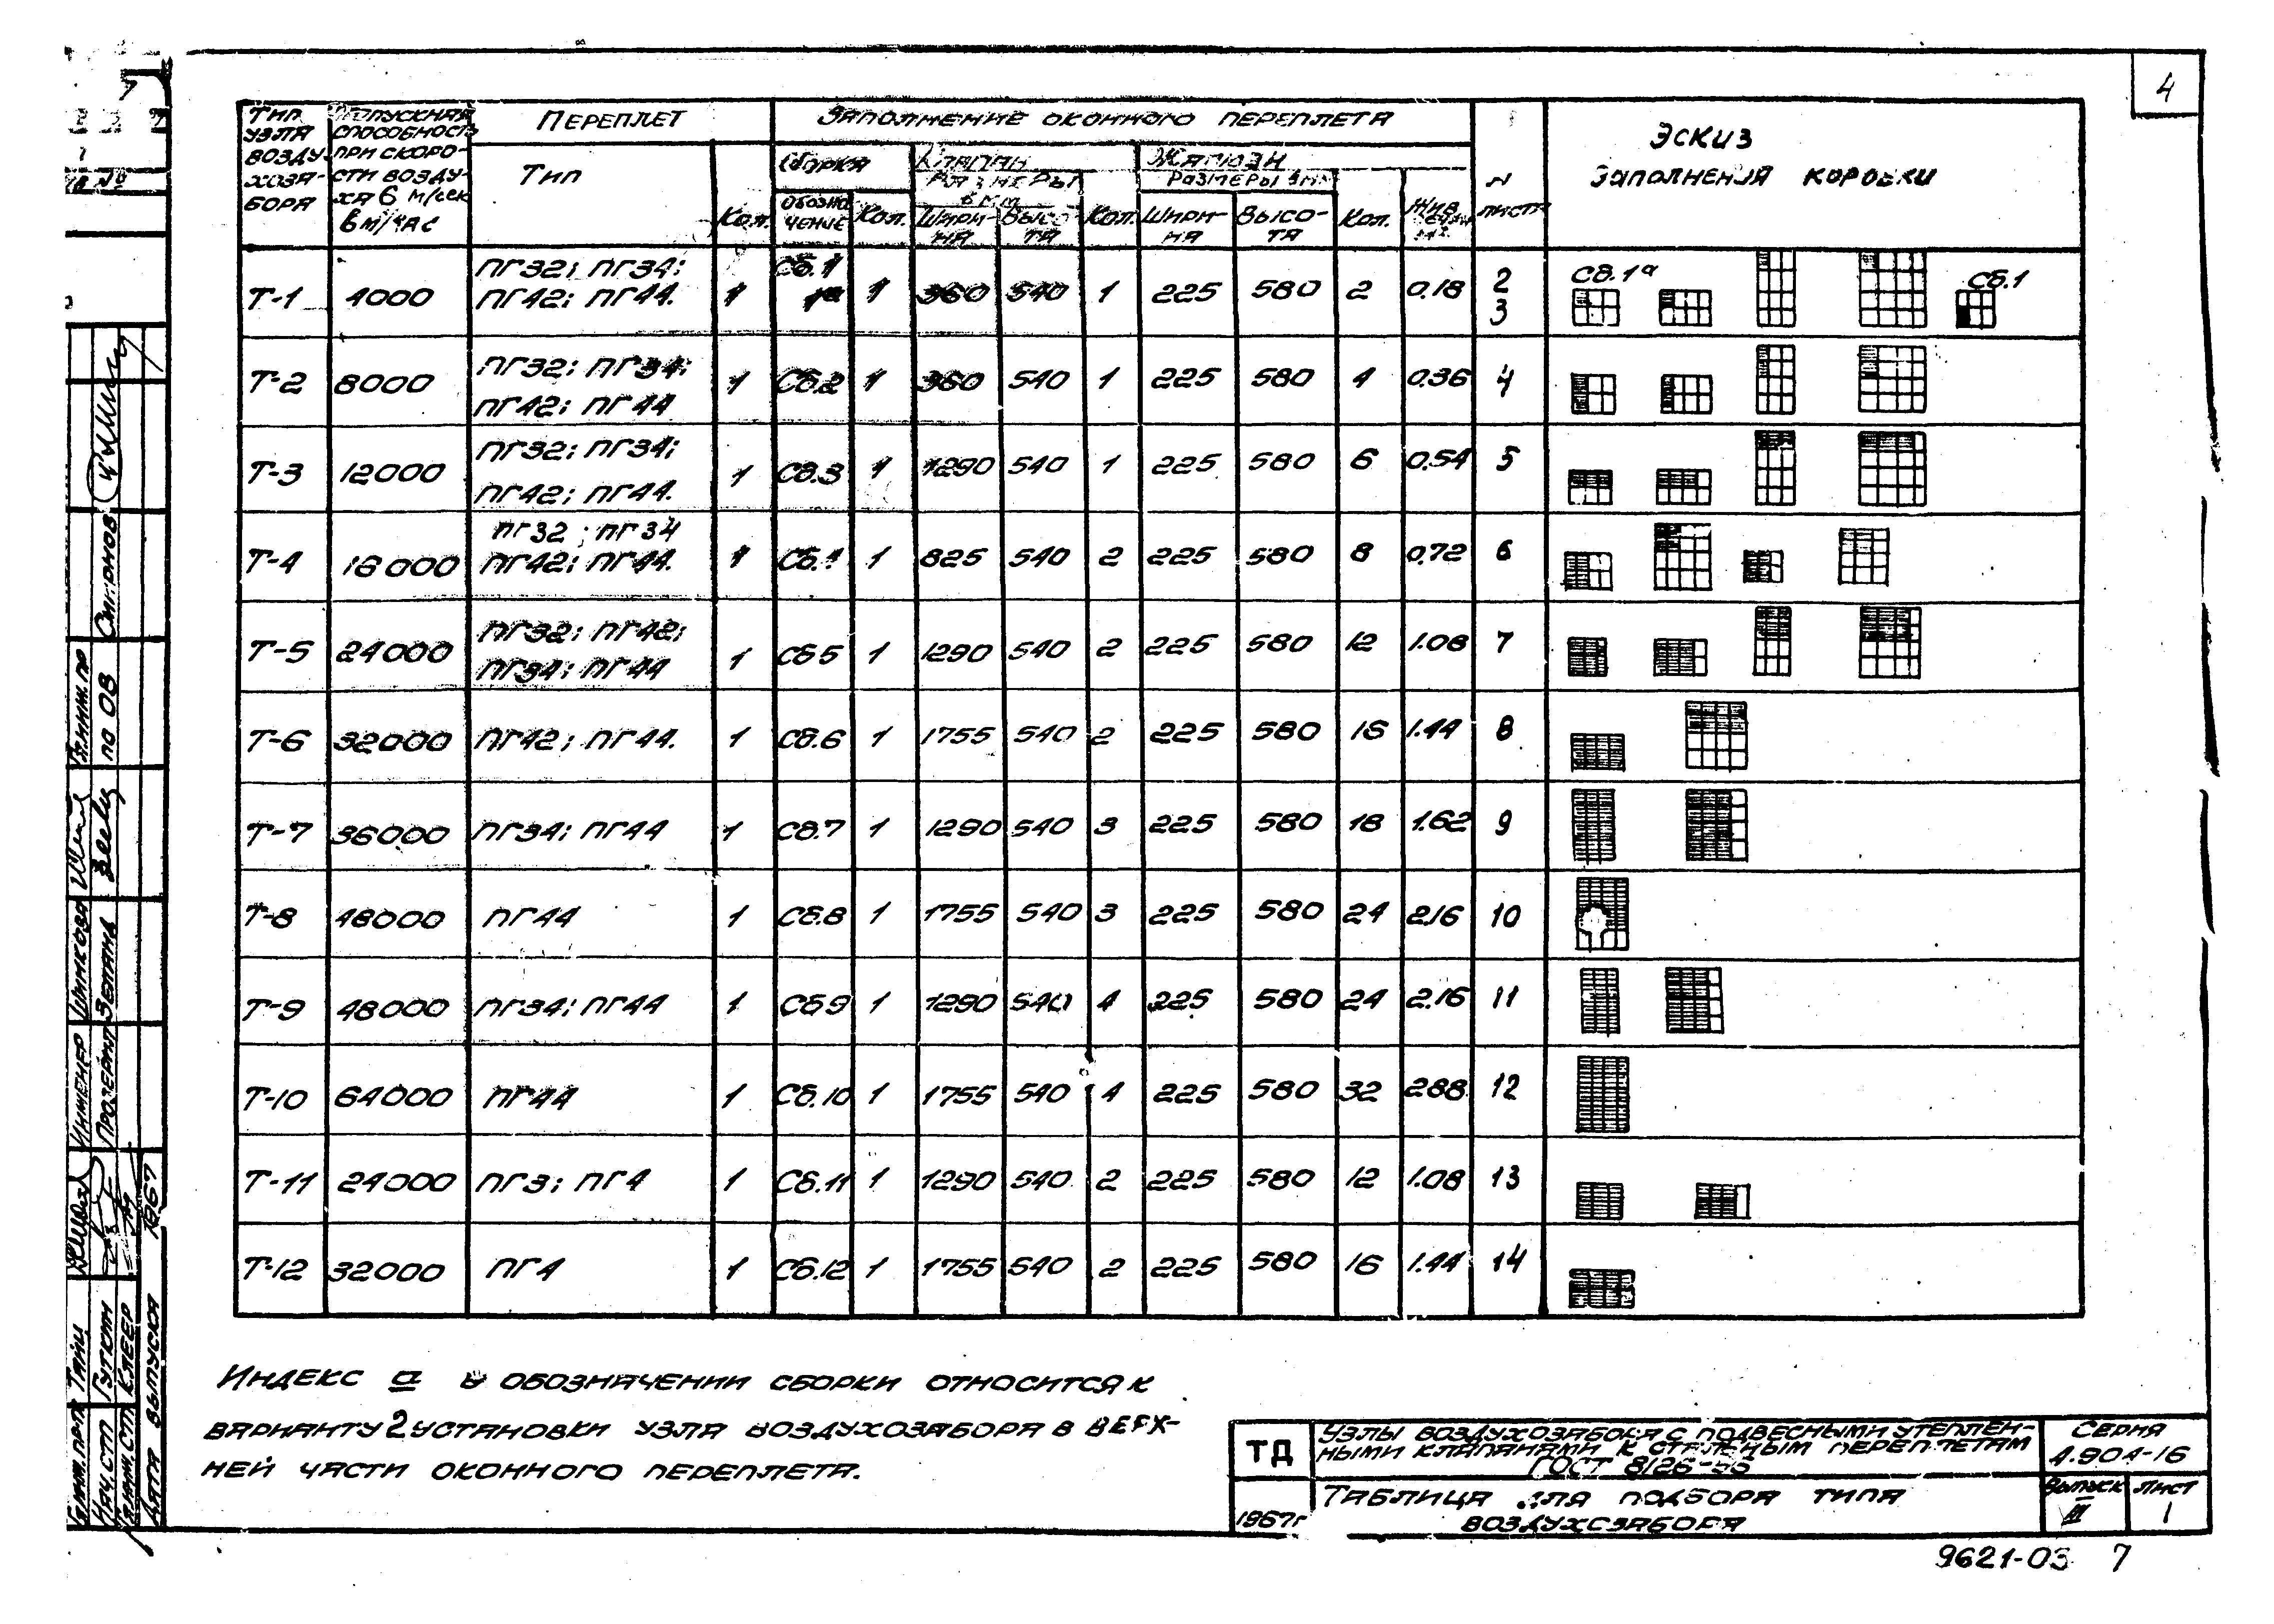 4
Тип узла воздухозабора
Пропускная способность при скорости воздуха 6 м/сек в м³/час
Переплет
Заполнение оконного переплета
N листа
Эскиз
заполнения коробки
Тип
Кол.
Сборка
Обозначение
Кол.
Клапан
Размеры в мм
Ширина
Высота
Кол.
Жалюзи
Размеры в мм
Ширина
Высота
Кол.
Жив. сечен. м²
Т-1 4000 ПГ32; ПГ34; ПГ42; ПГ44. 1 Сб.1 1а 1 360 540 1 225 580 2 0.18 2 3 Сб.1а Сб.1
Т-2 8000 ПГ32; ПГ34; ПГ42; ПГ44 1 Сб.2 1 360 540 1 225 580 4 0.36 4
Т-3 12000 ПГ32; ПГ34; ПГ42; ПГ44. 1 Сб.3 1 1290 540 1 225 580 6 0.54 5
Т-4 16000 ПГ32; ПГ34 ПГ42; ПГ44. 1 Сб.4 1 825 540 2 225 580 8 0.72 6
Т-5 24000 ПГ32; ПГ42; ПГ34; ПГ44 1 Сб5 1 1290 540 2 225 580 12 1.08 7
Т-6 32000 ПГ42; ПГ44. 1 Сб.6 1 1755 540 2 225 580 16 1.44 8
Т-7 36000 ПГ34; ПГ44 1 Сб.7 1 1290 540 3 225 580 18 1.62 9
Т-8 48000 ПГ44 1 Сб.8 1 1755 540 3 225 580 24 2.16 10
Т-9 48000 ПГ34; ПГ44 1 Сб.9 1 1290 540 4 225 580 24 2.16 11
Т-10 64000 ПГ44 1 Сб.10 1 1755 540 4 225 580 32 2.88 12
Т-11 24000 ПГ3; ПГ4 1 Сб.11 1 1290 540 2 225 580 12 1.08 13
Т-12 32000 ПГ4 1 Сб.12 1 1755 540 2 225 580 16 1.44 14
Индекс а в обозначении сборки относится к
варианту 2 установки узла воздухозабора в верх-
ней части оконного переплета.
ТД
1967г
Узлы воздухозабора с подвесными утеплен-
ными клапанами к стальным переплетам
ГОСТ 8126-56
Таблица для подбора типа
воздухозабора
Серия
4.904-16
Выпуск
III
Лист
1
9621-03 7
Смирнов
по ОВ
Инженер Шинкова
Проверил
Нач.стп Гуткин
Клеер
Дата выпуска 1967